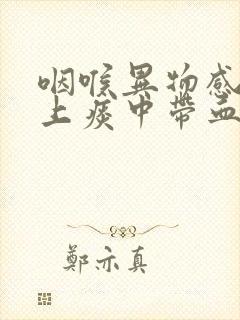 咽喉異物感
上痰中帶血
鄭亦真